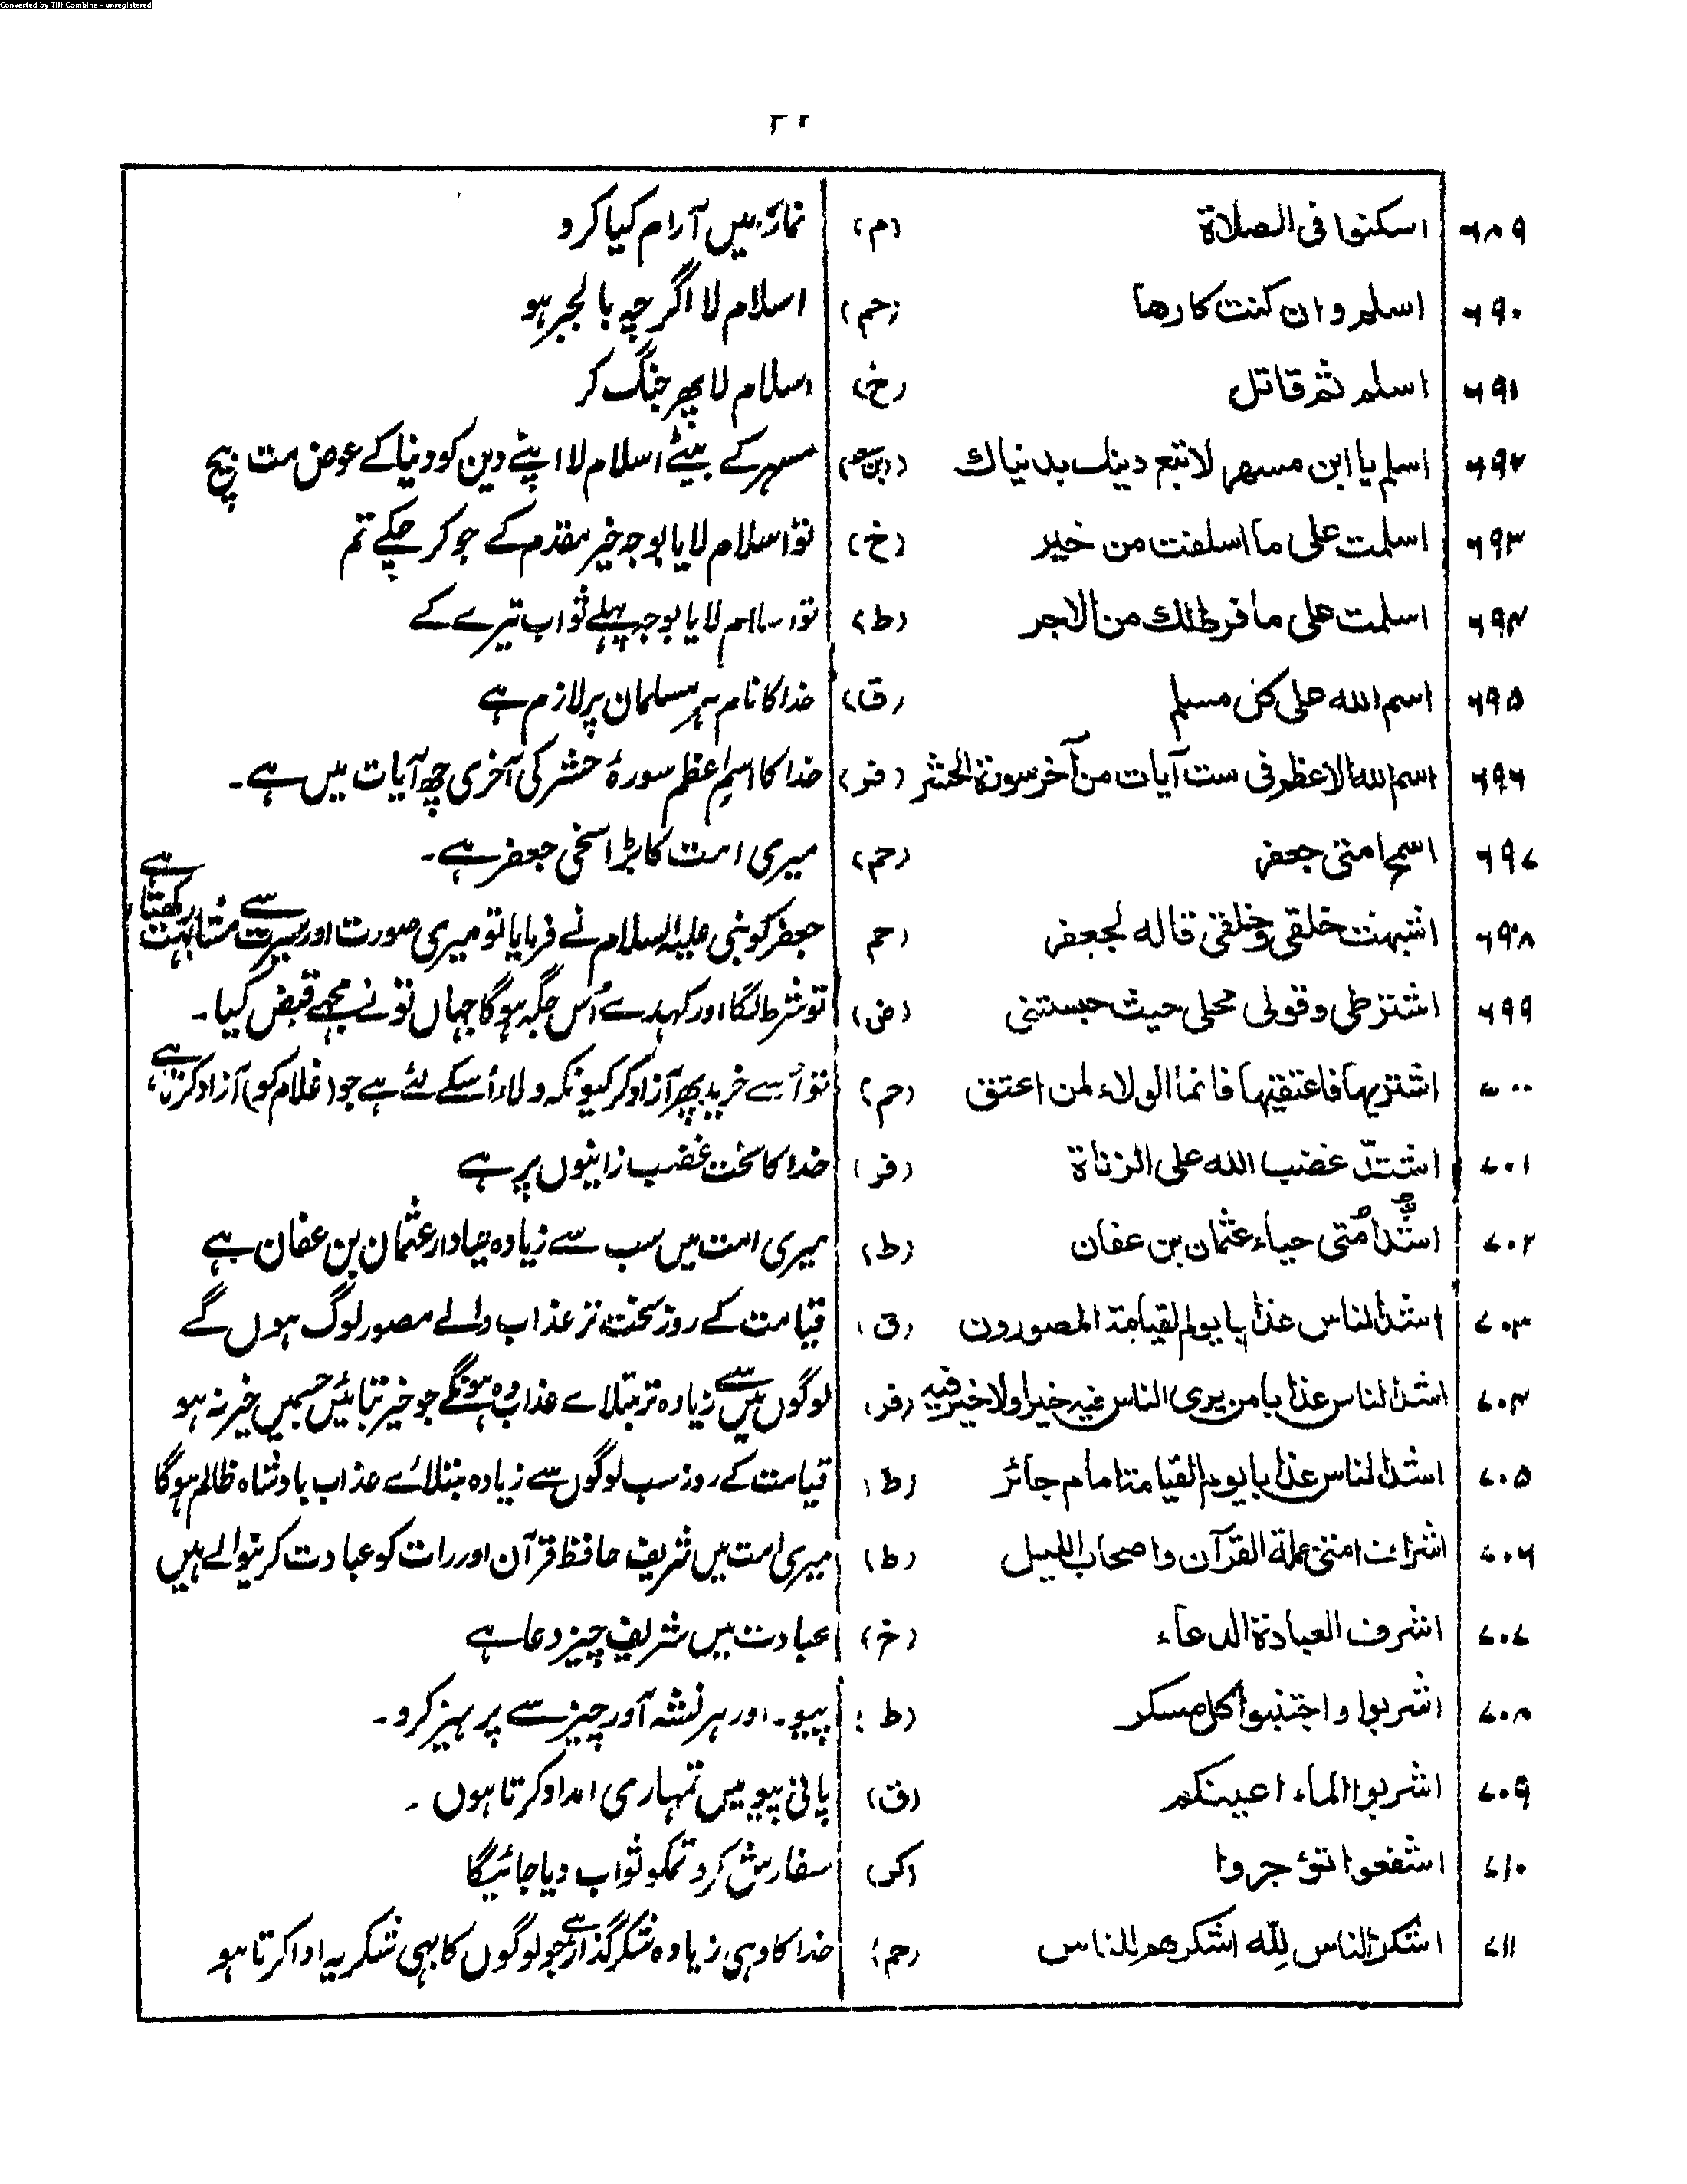 Converted by Tiff Combine - unregistered
۶۸۹ اسکنوا فی الصلاة (م) نماز میں آرام کیا کرو
۶۹۰ اسلم وان کنت کارها (حم) اسلام لا اگرچہ بالجبر ہو
۶۹۱ اسلم ثم قاتل (خ) اسلام لا پھر جنگ کر
۶۹۲ اسلم یا ابن مسهر لا تبع دینك بدنیاك مسہر کے بیٹے اسلام لا اپنے دین کو دنیا کے عوض مت بیچ
۶۹۳ اسلمت علی ما اسلفت من خیر (خ) تو اسلام لایا بوجہ خیر مقدم کے جو کر چکے تم
۶۹۴ اسلمت علی ما فرط لك من الاجر (ط) تو اسلام لایا بوجہ پہلے ثواب تیرے کے
۶۹۵ اسم الله علی کل مسلم (ق) خدا کا نام ہر مسلمان پر لازم ہے
۶۹۶ اسم الله الاعظم فی ست آیات من آخر سورة الحشر (فر) خدا کا اسمِ اعظم سورۂ حشر کی آخری چھ آیات میں ہے۔
۶۹۷ اسمح امتی جعفر (حم) میری امت کا بڑا سخی جعفر ہے۔
۶۹۸ اشبهت خلقی وخلقی قاله لجعفر (حم جعفر کو نبی علیہ السلام نے فرمایا تو میری صورت اور سیرت سے مشابہت رکھتا ہے
۶۹۹ اشترطی وقولی محلی حیث حبستنی (ض) تو شرط لگا اور کہدے اُس جگہ ہوگا جہاں تو نے مجھے قبض کیا۔
۷۰۰ اشتریها فاعتقیها فانما الولاء لمن اعتق (حم) تو اُسے خرید پھر آزاد کر کیونکہ ولاء اُسکے لئے ہے جو (غلام کو) آزاد کرتا ہے
۷۰۱ اشتدّ غضب الله علی الزناة (فر) خدا کا سخت غضب زانیوں پر ہے
۷۰۲ اشد امتی حیاء عثمان بن عفان (ط) میری امت میں سب سے زیادہ حیادار عثمان بن عفان ہے
۷۰۳ اشد الناس عذابا یوم القیامة المصورون (ق) قیامت کے روز سخت تر عذاب والے مصور لوگ ہوں گے
۷۰۴ اشد الناس عذابا من یری الناس فیه خیرا ولا خیر فیه (فر) لوگوں میں سے زیادہ تر مبتلاے عذاب وہ ہونگے جو خیر بتائیں جسمیں خیر نہ ہو
۷۰۵ اشد الناس عذابا یوم القیامة امام جائر (ط) قیامت کے روز سب لوگوں سے زیادہ مبتلائے عذاب بادشاہ ظالم ہوگا
۷۰۶ اشراف امتی حملة القرآن واصحاب اللیل (ط) میری امت میں شریف حافظ قرآن اور رات کو عبادت کرنیوالے ہیں
۷۰۷ اشرف العبادة الدعاء (خ) عبادت میں شریف چیز دعا ہے
۷۰۸ اشربوا واجتنبوا کل مسکر (ط) پیو۔ اور ہر نشہ آور چیز سے پرہیز کرو۔
۷۰۹ اشربوا الماء اعینکم (ق) پانی پیو میں تمہاری امداد کرتا ہوں۔
۷۱۰ اشفعوا تؤجروا (کر) سفارش کرو تمکو ثواب دیا جائیگا
۷۱۱ اشکر الناس لله اشکرهم للناس (حم) خدا کا وہی زیادہ شکر گذار ہے جو لوگوں کا بہی شکریہ ادا کرتا ہو